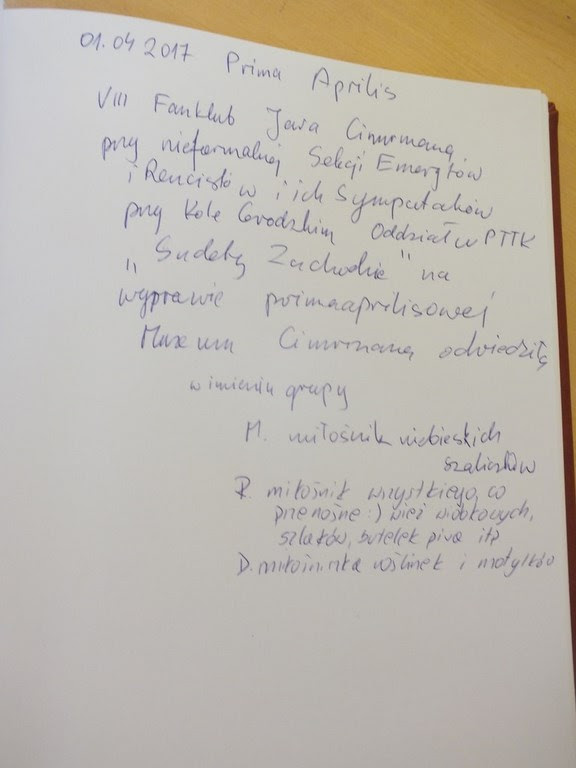 01.04 2017 Prima Aprilis
VIII Fanklub Jara Cimrmana
przy nieformalnej Sekcji Emerytów
i Rencistów i ich Sympatyków
przy Kole Grodzkim Oddziału PTTK
"Sudety Zachodnie" na
wyprawie primaaprilisowej
Muzeum Cimrmana odwiedziła
w imieniu grupy
M. miłośnik niebieskich
szalików
R. miłośnik wszystkiego, co
przenośne :) wież widokowych,
szlaków, butelek piwa itp
D. miłośniczka roślinek i motylków